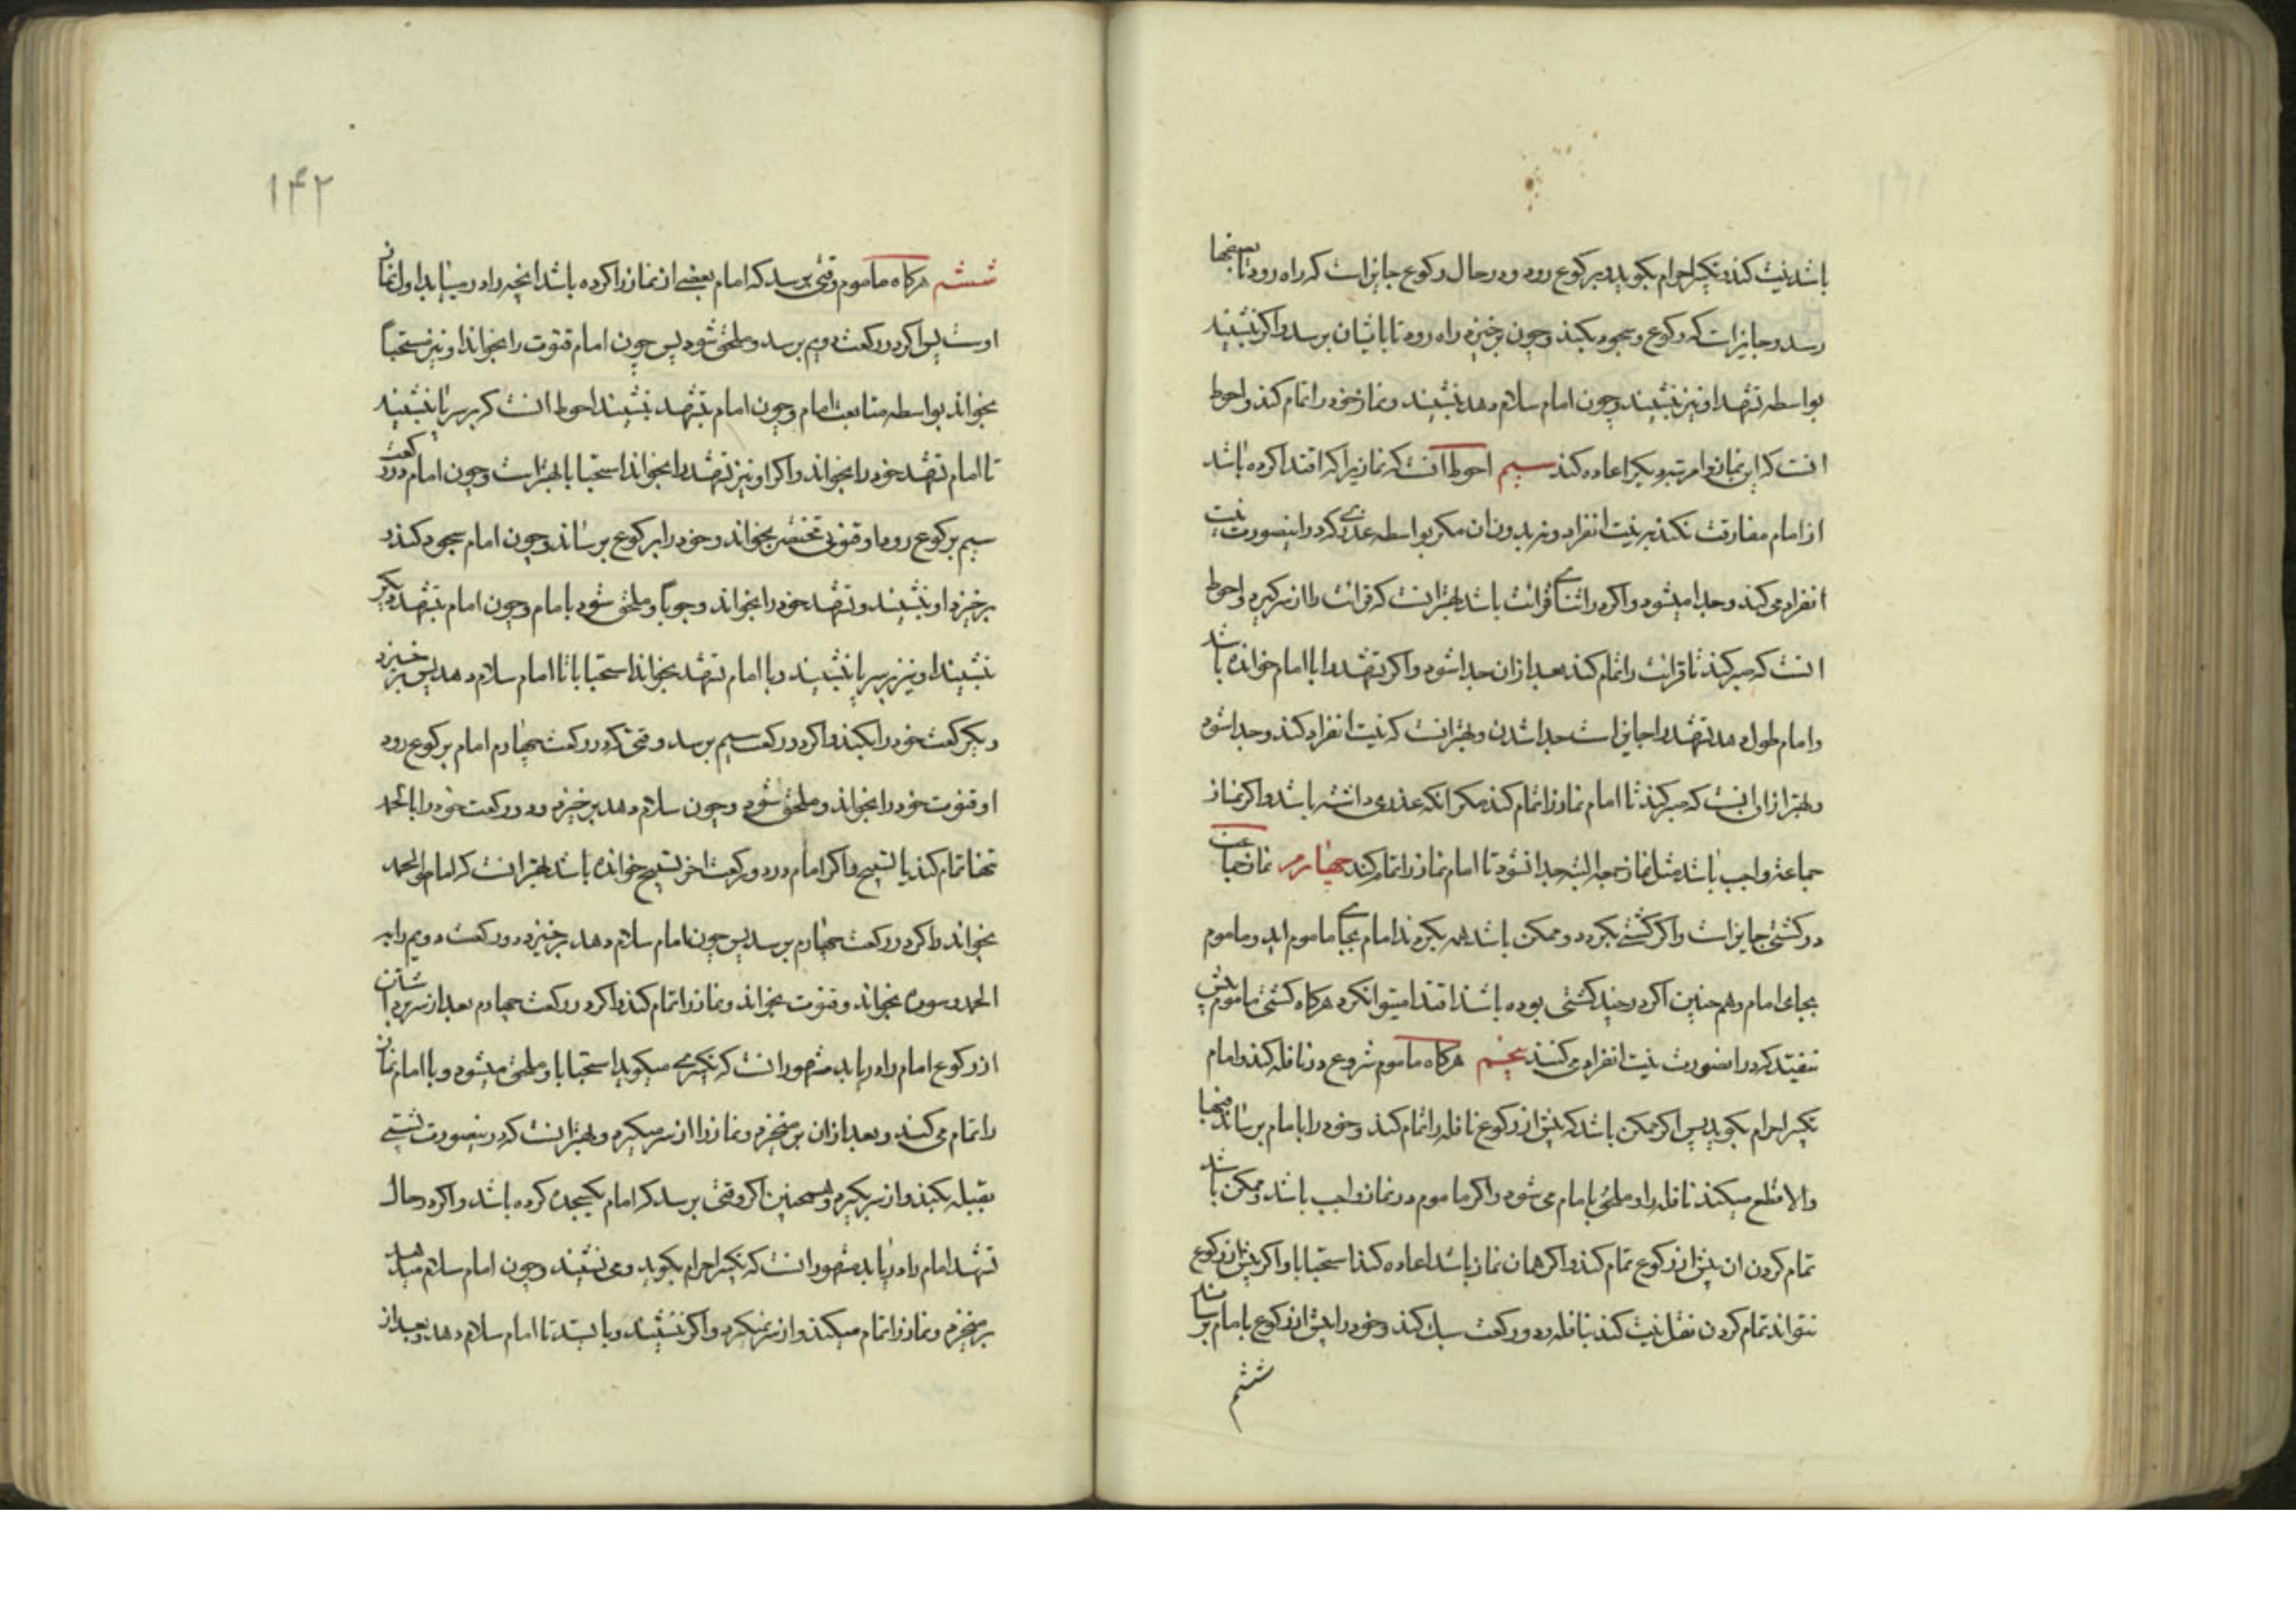 باشد نیت کند و تکبیر احرام بکوید و برکوع رود و در حال رکوع جایز است که راه رود تا بصفها
رسد و جایز است که رکوع و سجود بکند و چون برخیزد راه رود تا بایشان برسد و اکر نشیند
بواسطه تشهد او نیز نشیند و چون امام سلام دهد نشیند و نماز خود را تمام کند و احوط
انست که این نماز را مرتبه دیکر اعاده کند سیم احوط انست که نمازیرا که اقتدا کرده باشد
از امام مفارقت نکند بر نیت انفراد و نه بدون ان مکر بواسطه عذری که در اینصورت نیت
انفراد می کند و جدا میشود و اکر در اثنای قرائت باشد بهتر انست که قرائت را از سر کیرد و احوط
انست که صبر کند تا قرائت را تمام کند بعد از ان جدا شود و اکر تشهد را با امام خوانده باشد
و امام طول دهد تشهد را جایز است جدا شدن و بهتر انست که نیت انفراد کند و جدا شود
و بهتر از ان انست که صبر کند تا امام نماز را تمام کند مکر انکه عذری داشته باشد و اکر نماز
جماعه واجب باشد مثل نماز جمعه البته جدا نشود تا امام نماز را تمام کند چهارم نماز جماعت
در کشتی جایز است و اکر کشتی بکردد و ممکن باشد همه بکردند امام بجای ماموم اید و ماموم
بجای امام و هم چنین اکر در چند کشتی بوده باشد اقتدا میتوان کرد و هرکاه کشتی ماموم پیش
نیفتد که در انصورت نیت انفراد می کنند پنجم هرکاه ماموم شروع در نافله کند و امام
تکبیر احرام بکوید پس اکر ممکن باشد که پیش از رکوع نافله را تمام کند و خود را بامام برساند فبها
والا قطع میکند نافله را و ملحق بامام می شود و اکر ماموم در نماز واجب باشد و ممکن باشد
تمام کردن ان پیش از رکوع تمام کند و اکر همان نماز باشد اعاده کند استحبابا و اکر پیش از رکوع
نتواند تمام کردن نقل نیت کند بنافله و دو رکعت سبک کند و خود را پیش از رکوع بامام برساند
ششم
۱۴۲
ششم هرکاه ماموم وقتی برسد که امام بعضی از نماز را کرده باشد انچه را در مییابد اول نماز
اوست پس اکر در رکعت دویم برسد و ملحق شود پس چون امام قنوت را بخواند او نیز مستحبا
بخواند بواسطه متابعت امام و چون امام بتشهد نشیند احوط انست که بر سر پا نشیند
تا امام تشهد خود را بخواند و اکر او نیز تشهد را بخواند استحبابا بهتر است و چون امام در رکعت
سیم برکوع رود او قنوتی مختصر بخواند و خود را برکوع برساند و چون امام سجود کند و
برخیزد او بنشیند و تشهد خود را بخواند وجوبا و ملحق شود بامام و چون امام بتشهد دیکر
نشیند او نیز بر سر پا نشیند و با امام تشهد بخواند استحبابا تا امام سلام دهد پس برخیزد
و یکرکعت خود را بکند و اکر در رکعت سیم برسد وقتی که در رکعت چهارم امام برکوع رود
او قنوت خود را بخواند و ملحق شود و چون سلام دهد برخیزد و دو رکعت خود را با الحمد
تنها تمام کند یا تسبیح و اکر امام در دو رکعت اخر تسبیح خوانده باشد بهتر انست که الحمد
بخواند و اکر در رکعت چهارم برسد پس چون امام سلام دهد برخیزد و رکعت دویم را به
الحمد و سوره بخواند و قنوت بخواند و نماز را تمام کند و اکر در رکعت چهارم بعد از سر برداشتن
از رکوع امام را دریابد مشهور انست که تکبیر میکوید استحبابا و ملحق میشود و با امام نماز
را تمام می کند و بعد از ان بر میخیزد و نماز را از سر میکیرد و بهتر انست که در نیصورت نیتی
بقبله بکند و از سر بکیرد و همچنین اکر وقتی برسد که امام یکسجده کرده باشد و اکر در حال
تشهد امام را دریابد مشهور انست که تکبیر احرام بکوید و می نشیند و چون امام سلام میدهد
بر میخیزد و نماز را تمام میکند و از سر نمیکیرد و اکر ننشیند و بایستد تا امام سلام دهد و بعد از